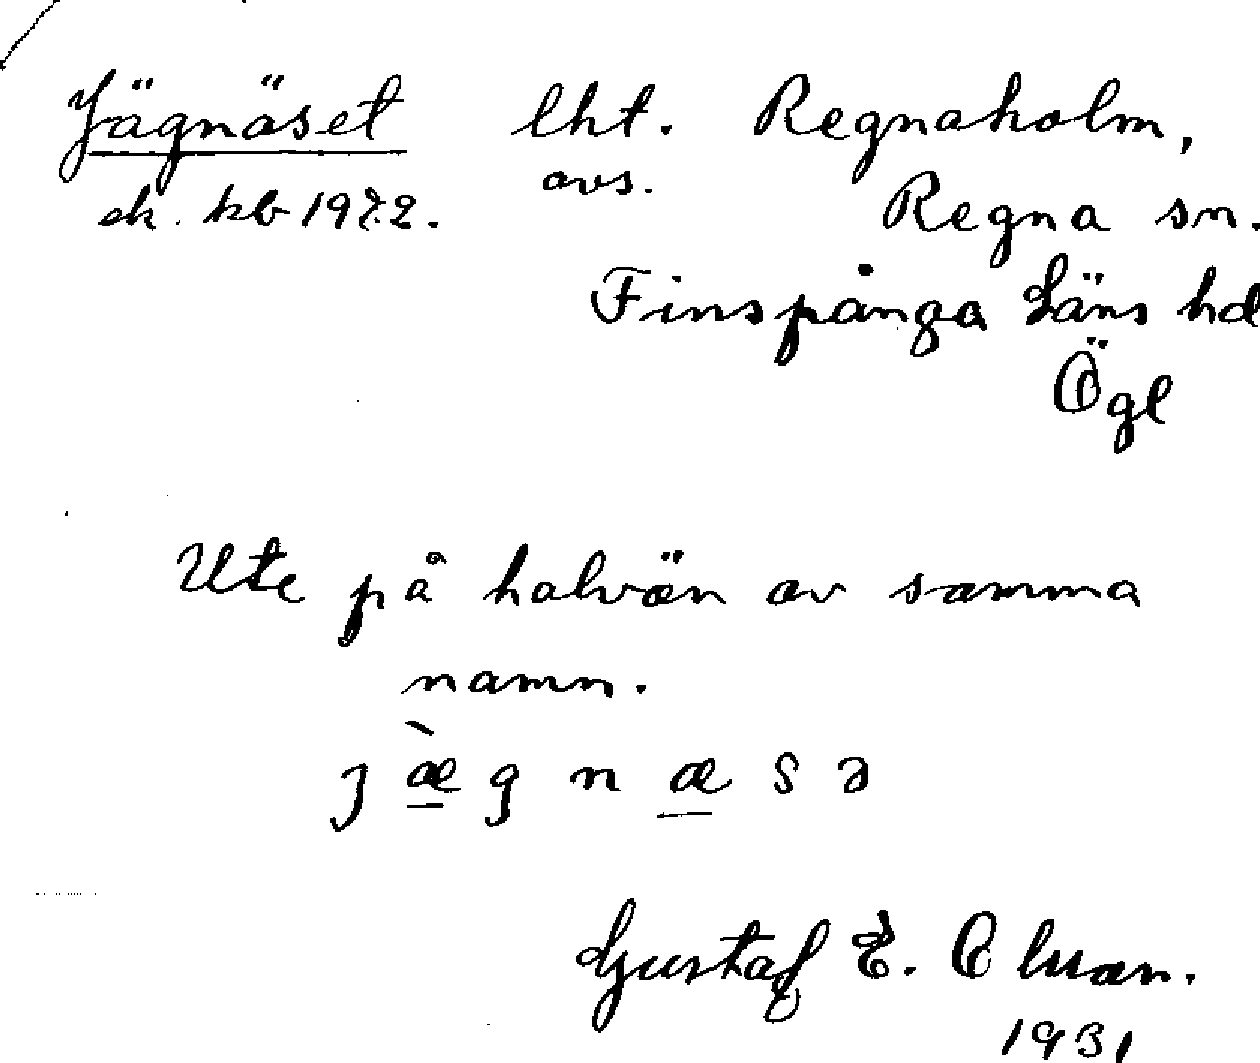 Jägnäset lht. Regnaholm,
ek. kb 1922. avs. Regna sn.
Finspånga läns hd
Ögl
Ute på halvön av samma
namn.
j æ̀ g n æ s ə
Gustaf E.
1931